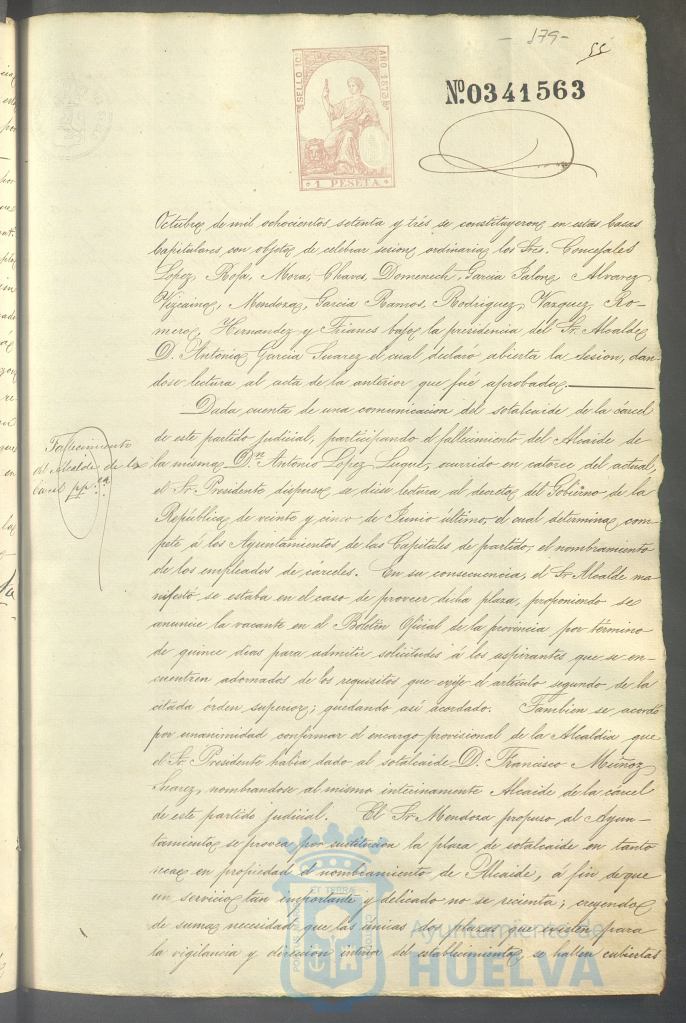 - 179 -
55
SELLO 10º
AÑO 1873
1 PESETA
Nº 0341563
Octubre de mil ochocientos setenta y trés se constituyeron en estas Casas
Capitulares, con objeto de celebrar sesion ordinaria los Sres. Concejales
Lopez, Rofa, Mora, Chaves, Domenech, Garcia Jalon, Alvarez,
Vizcaino, Mendoza, Garcia Ramos, Rodriguez, Vazquez, Ro-
mero, Hernandez y Trianes bajo la presidencia del Sr. Alcalde
D. Antonio Garcia Suarez el cual declaró abierta la sesion, dan-
dose lectura al acta de la anterior que fué aprobada.
Dada cuenta de una comunicacion del sotalcaide de la cárcel
de este partido judicial, participando el fallecimiento del Alcaide de
la misma Dn. Antonio López Luque, ocurrido en catorce del actual,
el Sr. Presidente dispuso se diese lectura al decreto del Gobierno de la
República de veinte y cinco de Junio último, el cual determina com-
pete á los Ayuntamientos de las Capitales de partido, el nombramiento
de los empleados de cárceles. En su consecuencia, el Sr. Alcalde ma-
nifestó se estaba en el caso de proveer dicha plaza, proponiendo se
anuncie la vacante en el Boletin Oficial de la provincia por término
de quince dias para admitir solicitudes á los aspirantes que se en-
cuentren adornados de los requisitos que exije el artículo segundo de la
citada órden superior; quedando así acordado. Tambien se acordó
por unanimidad confirmar el encargo provisional de la Alcaldia que
el Sr. Presidente habia dado al sotalcaide D. Francisco Muñoz
Suarez, nombrandose al mismo interinamente Alcaide de la cárcel
de este partido judicial. El Sr. Mendoza propuso al Ayun-
tamiento se provea por sustitucion la plaza de sotalcaide en tanto
recae en propiedad el nombramiento de Alcaide, á fin de que
un servicio tan importante y delicado no se resienta; creyendo
de suma necesidad que las únicas dos plazas que existen para
la vigilancia y direccion interior del establecimiento se hallen cubiertas
Fallecimiento
del Alcaide de la
Carcel pp.ca
ET TERRAE
Ayuntamiento de
HUELVA